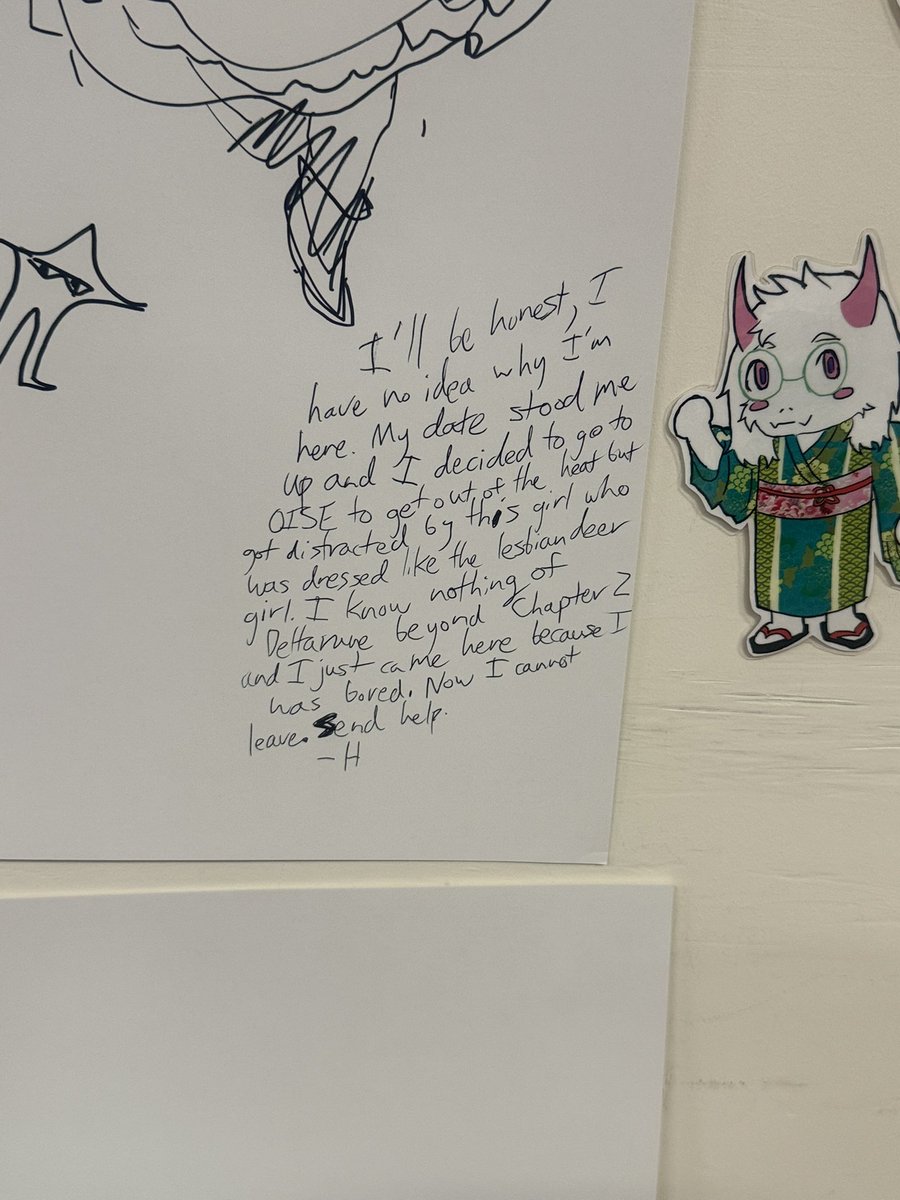 I'll be honest, I
have no idea why I'm
here. My date stood me
up and I decided to go to
OISE to get out of the heat but
got distracted by this girl who
was dressed like the lesbian deer
girl. I know nothing of
Deltarune beyond Chapter 2
and I just came here because I
was bored. Now I cannot
leave. Send help.
- H